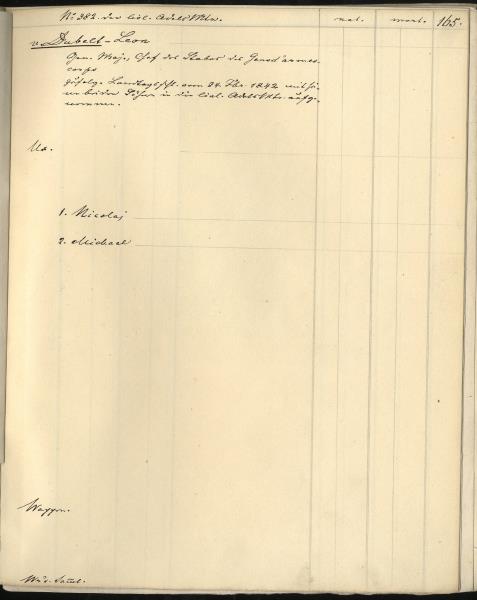 No 382. der livl. Adels Mtr. nat. mort. 165.
v. Dubelt - Leon
Gen. Maj., Chef des Stabes des Gensd'armes
corps
zufolge Landtagsschl. vom 24. Febr. 1842 mit
beiden Söhnen in die livl. Adels Mtr. aufge-
nommen.
Ux.
1. Nicolaj
2. Michael
Wappen.